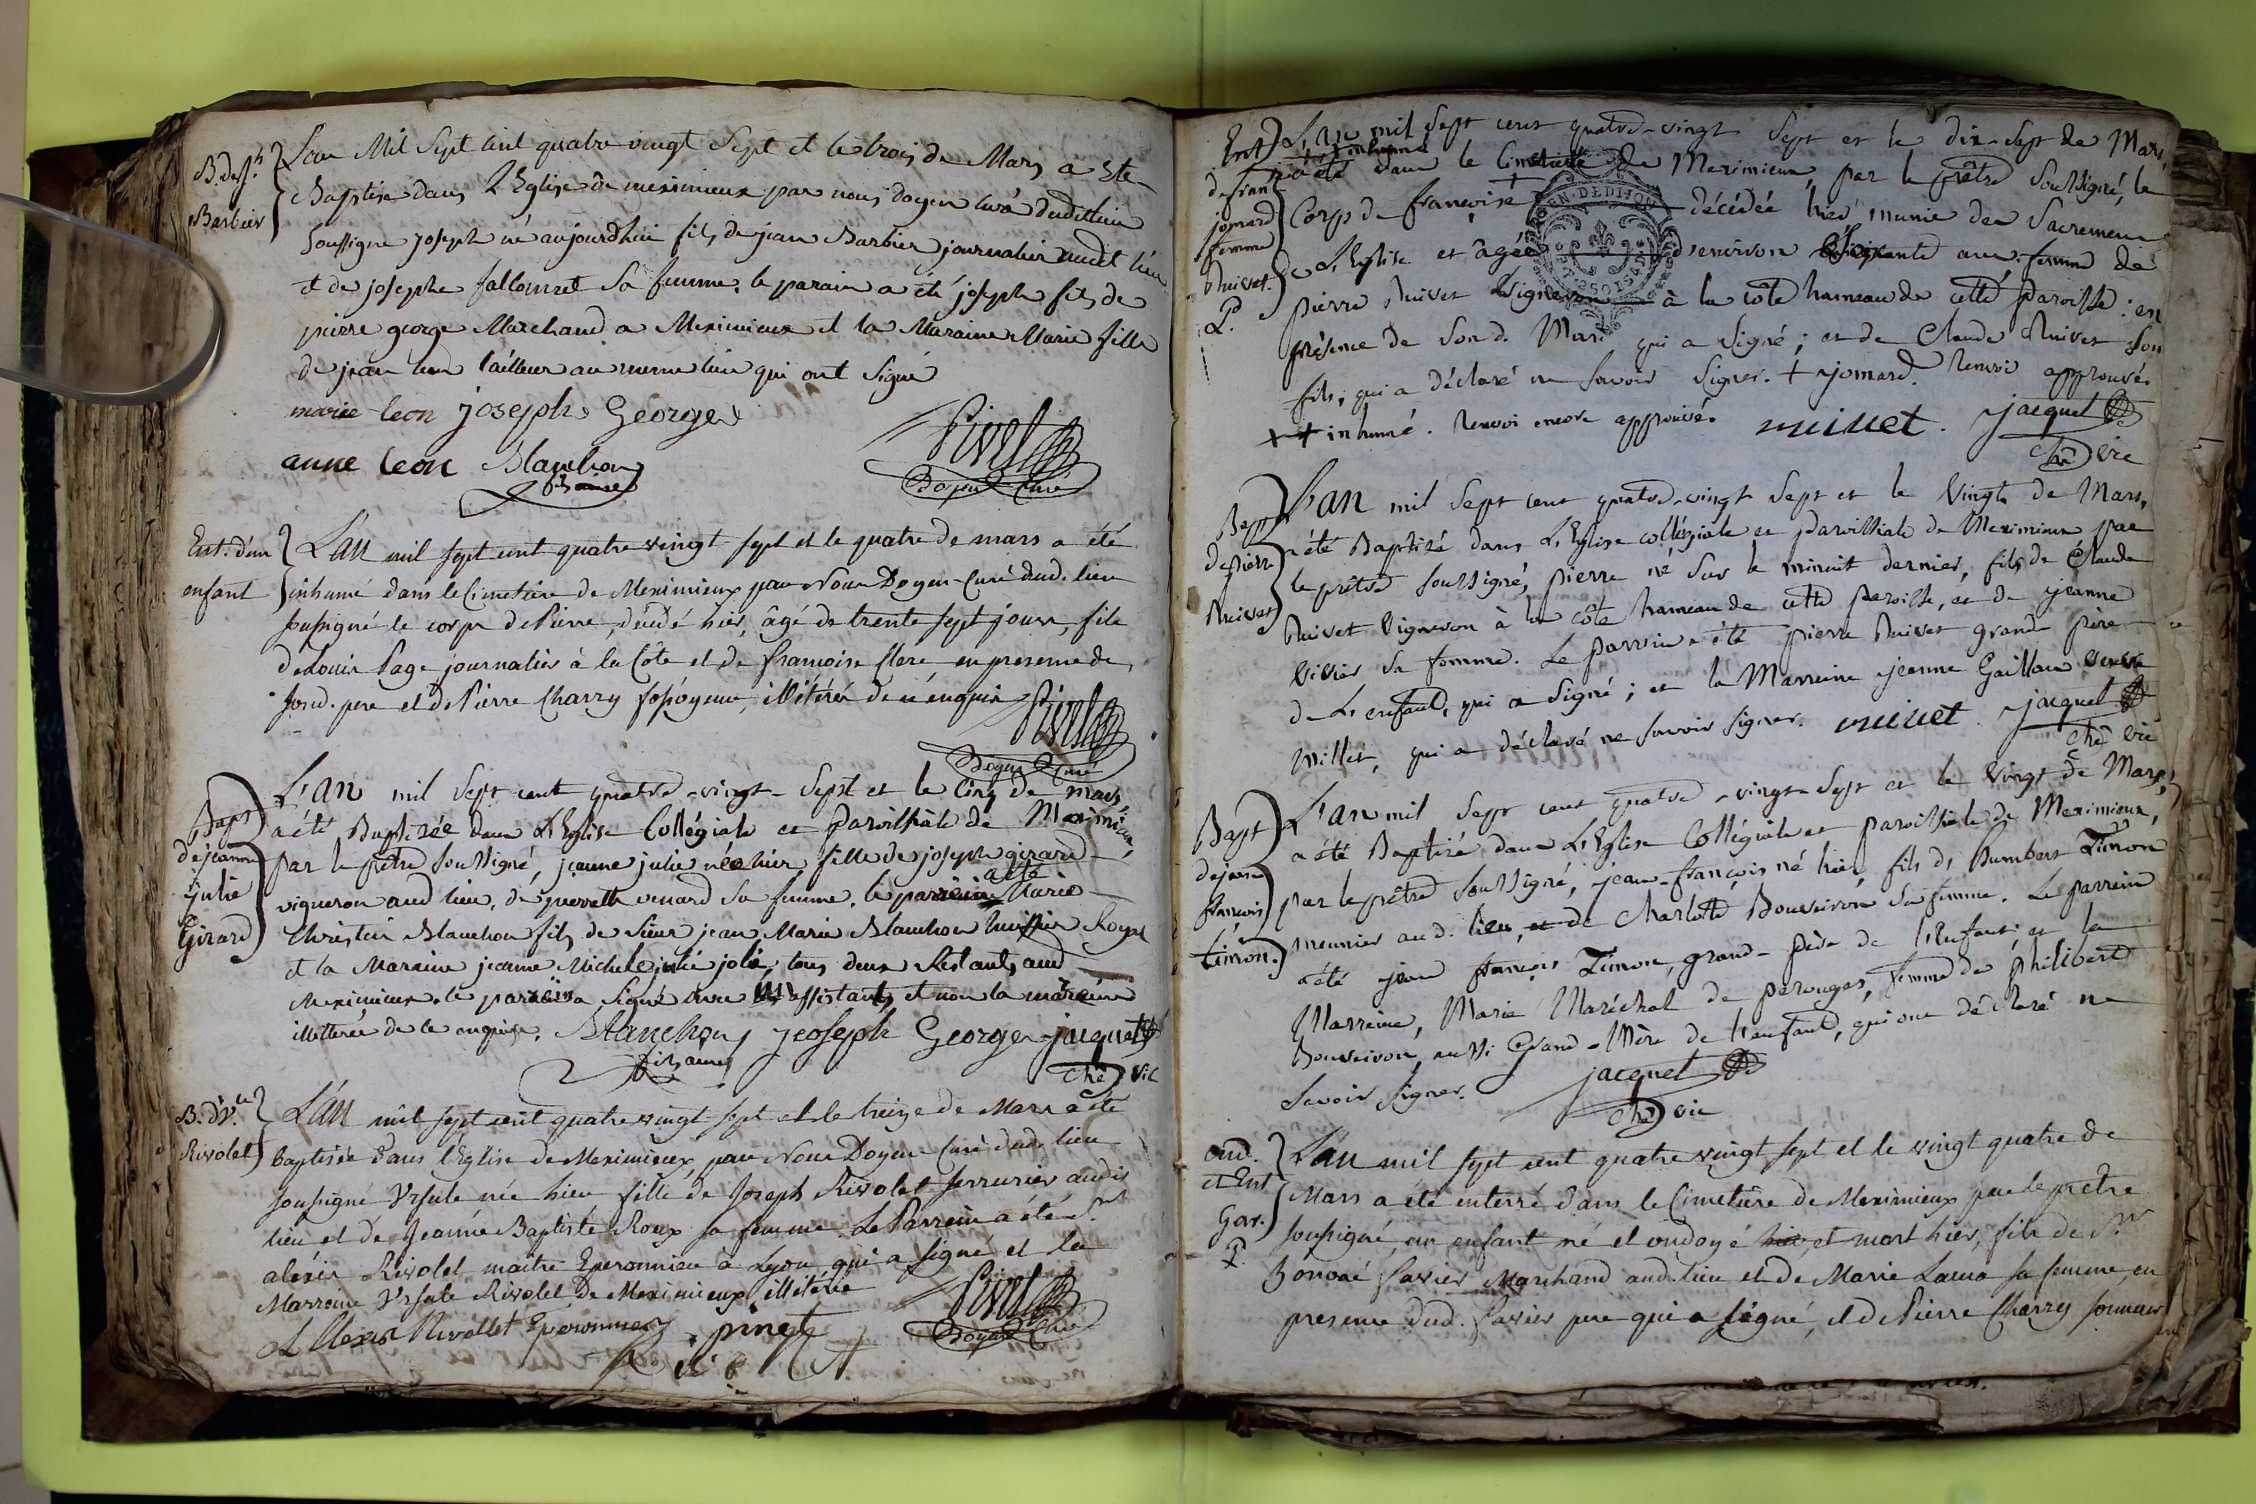 B. de Jh
Barbier
L'an Mil Sept Cent quatre vingt Sept et le trois de Mars a Ete
Baptisé dans L'Eglise de meximieux par nous doyen curé dudit lieu
soussigné joseph né aujourdhui fils de jean Barbier journalier audit lieu
et de josephe fallouret Sa femme. le parain a été joseph fils de
pierre george Marchand a Meximieux et la Maraine Marie fille
de jean leon tailleur au meme lieu qui ont Signé
marie leon joseph George
anne leon Blanchon
fils ainé
Pivet
Doyen Curé
Ent. d'un
enfant
L'an mil sept cent quatre vingt sept et le quatre de mars a été
inhumé dans le Cimetiere de Meximieux par Nous Doyen Curé dud. lieu
soussigné le corps de Pierre, décédé hier, âgé de trente sept jours, fils
de Louis Page journalier à la Côte et de françoise clere en presence de
sond. pere et de Pierre Charry fossoyeur, illitérés de ce enquis
Pivet
Doyen Curé
Bapt
de jeanne
julie
Girard
L'an mil Sept cent quatre-vingt-Sept et le Cinq de mars,
a été Baptisée dans L'Eglise Collégiale et paroissiale de Meximieux,
par le prêtre Soussigné, jeanne julie née hier fille de joseph girard
vigneron aud lieu, de pierrette venard sa femme. le parrein a été Marie
Christin Blanchon fils de Sieur jean Marie Blanchon huissier Royal
et la Maraine jeanne Michele julie jolie, tous deux Restants aud
Meximieux. le parrein a Signé avec les assistants, et non la marreine
illitterée de ce enquise. Blanchon joseph George jacquet
fils ainé
che vic
B. d'V.le
Rivolet
L'an mil sept cent quatre vingt sept et le treize de Mars a été
baptisée dans l'Eglise de Meximieux, par Nous Doyen Curé dud. lieu
soussigné Ursule née hier fille de Joseph Rivolet serrurier audit
lieu et de Jeanne Baptiste Roux sa femme. Le Parrein a été Sr
aléxis Rivolet maître Eperonnier à Lyon qui a signé et la
Marraine Ursule Rivolet de Meximieux illitérée
Alexis Rivollet Eperonnier pinet
Pivet
Doyen Curé
Ent
de fran
jomard
femme
Nuivet.
P.
L'an mil Sept cent quatre-vingt Sept et le dix-Sept de Mars,
a été dans le Cimetiere de Meximieux, par le prêtre Soussigné, le
Corps de françoise décédée hier, munie des Sacremens
de L'Eglise et âgée d'environ ans, femme de
pierre Nuivet Vigneron à la côte hameau de cette paroisse: en
présence de Sond. Mari qui a Signé; et de Claude Nuivet Son
fils, qui a déclaré ne Savoir Signer. + jomard. Renvoi approuvé.
++ inhumé. Renvoi encore approuvé. nuivet. jacquet
che vic
Bapt
de pierre
Nuivet
L'an mil Sept cent quatre-vingt Sept et le Vingt de Mars,
a été Baptisé dans L'Eglise collégiale et paroissiale de Meximieux par
le prêtre soussigné, pierre né Sur le minuit dernier, fils de Claude
Nuivet Vigneron à la côte hameau de cette paroisse, et de jeanne
Vivier Sa femme. Le parrein a été pierre Nuivet grand-père
de L'enfant, qui a Signé; et la Marreine jeanne Gaillan veuve
Millet, qui a déclaré ne Savoir Signer. nuivet. jacquet
che vic
Bapt
de jean
françois
timon.
L'an mil Sept cent quatre-vingt-Sept et le Vingt de Mars,
a été Baptisé dans L'Eglise Collégiale et paroissiale de Meximieux,
par le prêtre Soussigné, jean-françois né hier fils de Humbert Timon
meunier aud. lieu, et de Charlotte Bouveiron Sa femme. Le parrein
a été jean françois Timon, grand-père de L'enfant; et la
Marreine, Marie Maréchal de perouges, femme de philibert
Bouveiron aussi Grand-Mère de L'enfant, qui ont déclaré ne
Savoir Signer. jacquet
che vic
ond.
et Ent
Gar.
P.
L'an mil sept cent quatre vingt sept et le vingt quatre de
Mars a été enterré dans le Cimetiere de Meximieux par le prêtre
soussigné, un enfant né et ondoyé et mort hier, fils de Sr
honoré Savier Marchand aud. lieu et de Marie Lama sa femme, en
presence dud. Savier pere qui a signé, et de Pierre Charry sonneur